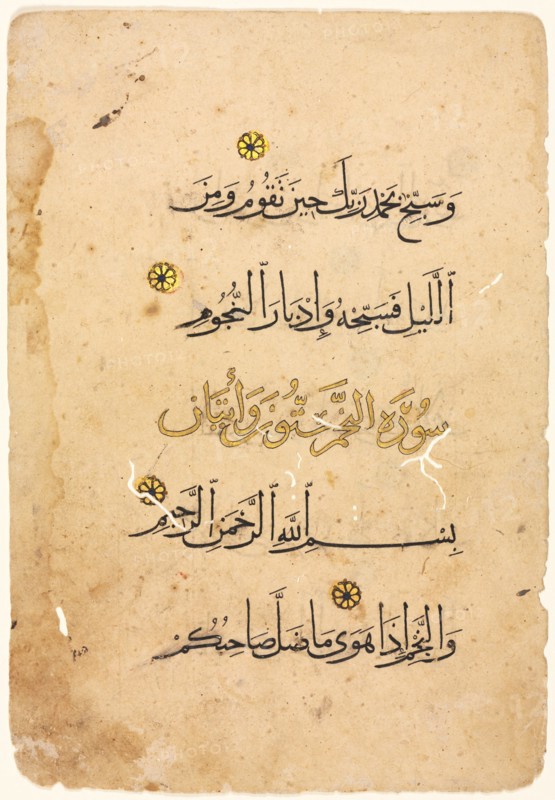 وَسَبِّحْ بِحَمْدِ رَبِّكَ حِينَ تَقُومُ وَمِنَ
ٱللَّيْلِ فَسَبِّحْهُ وَإِدْبَارَ ٱلنُّجُومِ
سُورَةِ النَّجْمِ سِتُّونَ وَأٰيَتَانِ
بِسْمِ ٱللَّهِ ٱلرَّحْمَنِ ٱلرَّحِيمِ
وَالنَّجْمِ إِذَا هَوَى مَا ضَلَّ صَاحِبُكُمْ
PHOTO12